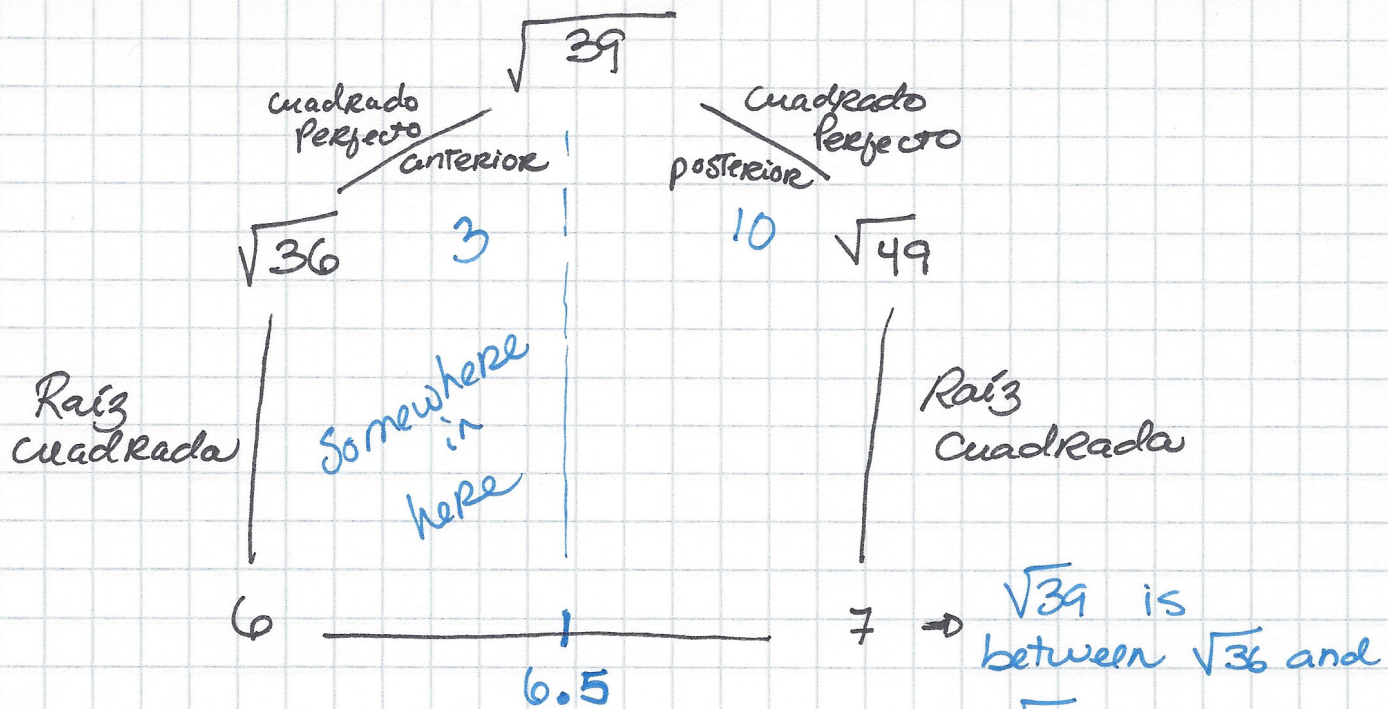 √39
cuadrado
Perfecto
anterior
cuadrado
Perfecto
posterior
√36
3
10
√49
Raíz
cuadrada
Somewhere
in
here
Raíz
cuadrada
6
7 ⇒
√39 is
between √36 and
6.5